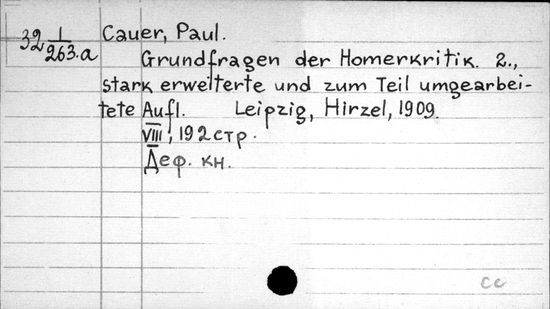 32 1/263.a Cauer, Paul.
Grundfragen der Homerkritik. 2.,
stark erweiterte und zum Teil umgearbei-
tete Aufl. Leipzig, Hirzel, 1909.
VIII, 192 стр.
Деф. кн.
сс